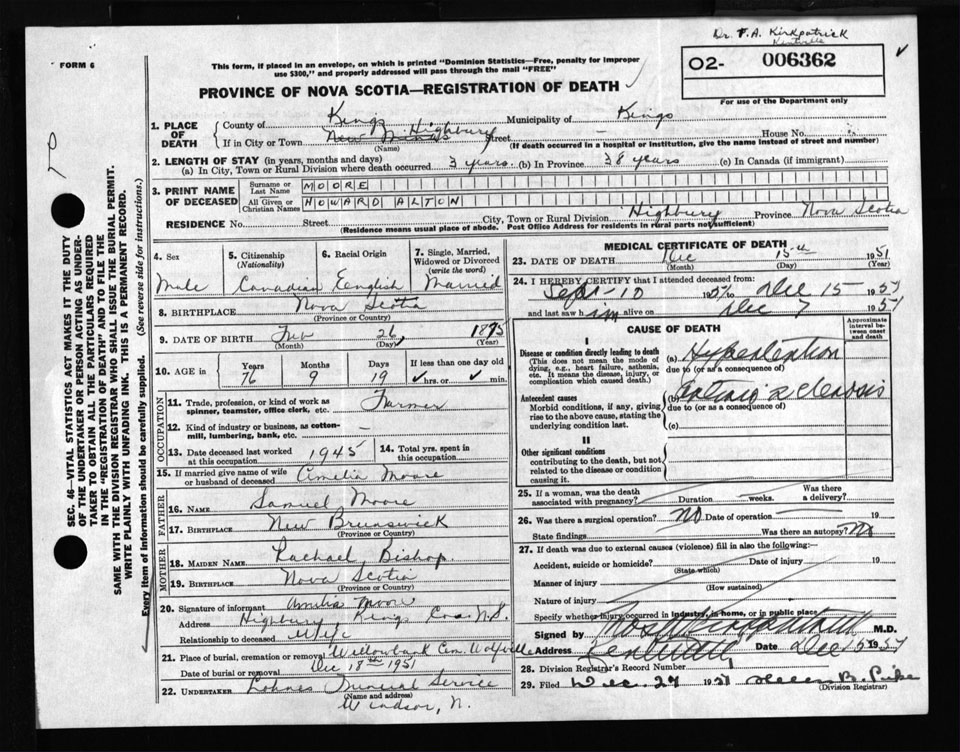 Dr. F. A. Kirkpatrick
Kentville
FORM 6
This form, if placed in an envelope, on which is printed "Dominion Statistics—Free, penalty for improper
use $300," and properly addressed will pass through the mail "FREE"
O2- 006362
PROVINCE OF NOVA SCOTIA—REGISTRATION OF DEATH
For use of the Department only
1. PLACE OF DEATH
County of Kings Municipality of Kings
If in City or Town New Minas Highbury Street — House No.
(Name) (If death occurred in a hospital or institution, give the name instead of street and number)
2. LENGTH OF STAY (in years, months and days)
(a) In City, Town or Rural Division where death occurred 3 years. (b) In Province 38 years (c) In Canada (if immigrant)
3. PRINT NAME OF DECEASED
Surname or Last Name MOORE
All Given or Christian Names HOWARD ALTON
RESIDENCE No. Street City, Town or Rural Division Highbury Province Nova Scotia
(Residence means usual place of abode. Post Office Address for residents in rural parts not sufficient)
4. Sex Male
5. Citizenship (Nationality) Canadian
6. Racial Origin English
7. Single, Married, Widowed or Divorced (write the word) Married
8. BIRTHPLACE Nova Scotia
(Province or Country)
9. DATE OF BIRTH 26 1875
(Month) (Day) (Year)
10. AGE in Years 76 Months 9 Days 19 If less than one day old ✓ hrs. or ✓ min.
OCCUPATION
11. Trade, profession, or kind of work as spinner, teamster, office clerk, etc. Farmer
12. Kind of industry or business, as cotton-mill, lumbering, bank, etc. —
13. Date deceased last worked at this occupation 1945
14. Total yrs. spent in this occupation
15. If married give name of wife or husband of deceased Amelia Moore
FATHER
16. NAME Samuel Moore
17. BIRTHPLACE New Brunswick
(Province or Country)
MOTHER
18. MAIDEN NAME Rachael Bishop.
19. BIRTHPLACE Nova Scotia
(Province or Country)
20. Signature of informant Amelia Moore
Address Highbury Kings Co. N.S.
Relationship to deceased Wife
21. Place of burial, cremation or removal Willowbank Cem. Wolfville
Date of burial or removal Dec 18th 1951
22. UNDERTAKER Lohnes Funeral Service
(Name and address)
Windsor, N.
MEDICAL CERTIFICATE OF DEATH
23. DATE OF DEATH Dec 15th 1951
(Month) (Day) (Year)
24. I HEREBY CERTIFY that I attended deceased from:
Sept 10 1951 to Dec 15 1951
and last saw him alive on Dec 7 1951
CAUSE OF DEATH
Approximate interval between onset and death
I
Disease or condition directly leading to death
(This does not mean the mode of dying, e.g., heart failure, asthenia, etc. It means the disease, injury, or complication which caused death.)
(a) Hypertention
due to (or as a consequence of)
Antecedent causes
Morbid conditions, if any, giving rise to the above cause, stating the underlying condition last.
(b)
due to (or as a consequence of)
(c)
II
Other significant conditions
contributing to the death, but not related to the disease or condition causing it.
25. If a woman, was the death associated with pregnancy? Duration weeks. Was there a delivery?
26. Was there a surgical operation? No Date of operation 19
State findings Was there an autopsy? No
27. If death was due to external causes (violence) fill in also the following:—
Accident, suicide or homicide? Date of injury 19
(State which)
Manner of injury
(How sustained)
Nature of injury
Specify whether injury occurred in industry, in home, or in public place
Signed by M.D.
Address Kentville Date Dec 15 1951
28. Division Registrar's Record Number
29. Filed Dec. 27 1951 Helen B. Pike
(Division Registrar)
SEC. 46—VITAL STATISTICS ACT MAKES IT THE DUTY
OF THE UNDERTAKER OR PERSON ACTING AS UNDER-
TAKER TO OBTAIN ALL THE PARTICULARS REQUIRED
IN THE "REGISTRATION OF DEATH" AND TO FILE THE
SAME WITH THE DIVISION REGISTRAR WHO SHALL ISSUE THE BURIAL PERMIT.
WRITE PLAINLY WITH UNFADING INK. THIS IS A PERMANENT RECORD.
Every item of information should be carefully supplied. (See reverse side for instructions.)